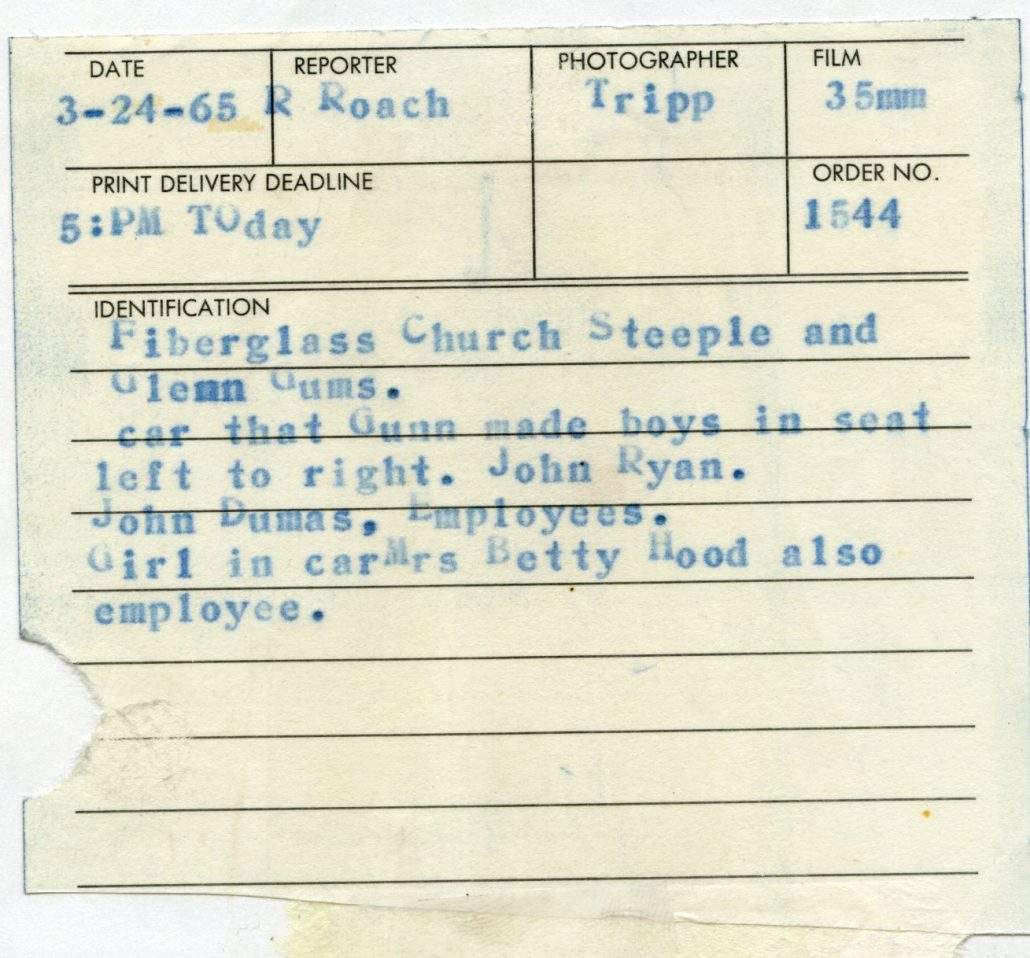 DATE REPORTER PHOTOGRAPHER FILM
3-24-65 R Roach Tripp 35mm
PRINT DELIVERY DEADLINE ORDER NO.
5:PM TOday 1544
IDENTIFICATION
Fiberglass Church Steeple and
Glenn Gums.
car that Gunn made boys in seat
left to right. John Ryan.
John Dumas, Employees.
Girl in carMrs Betty Hood also
employee.